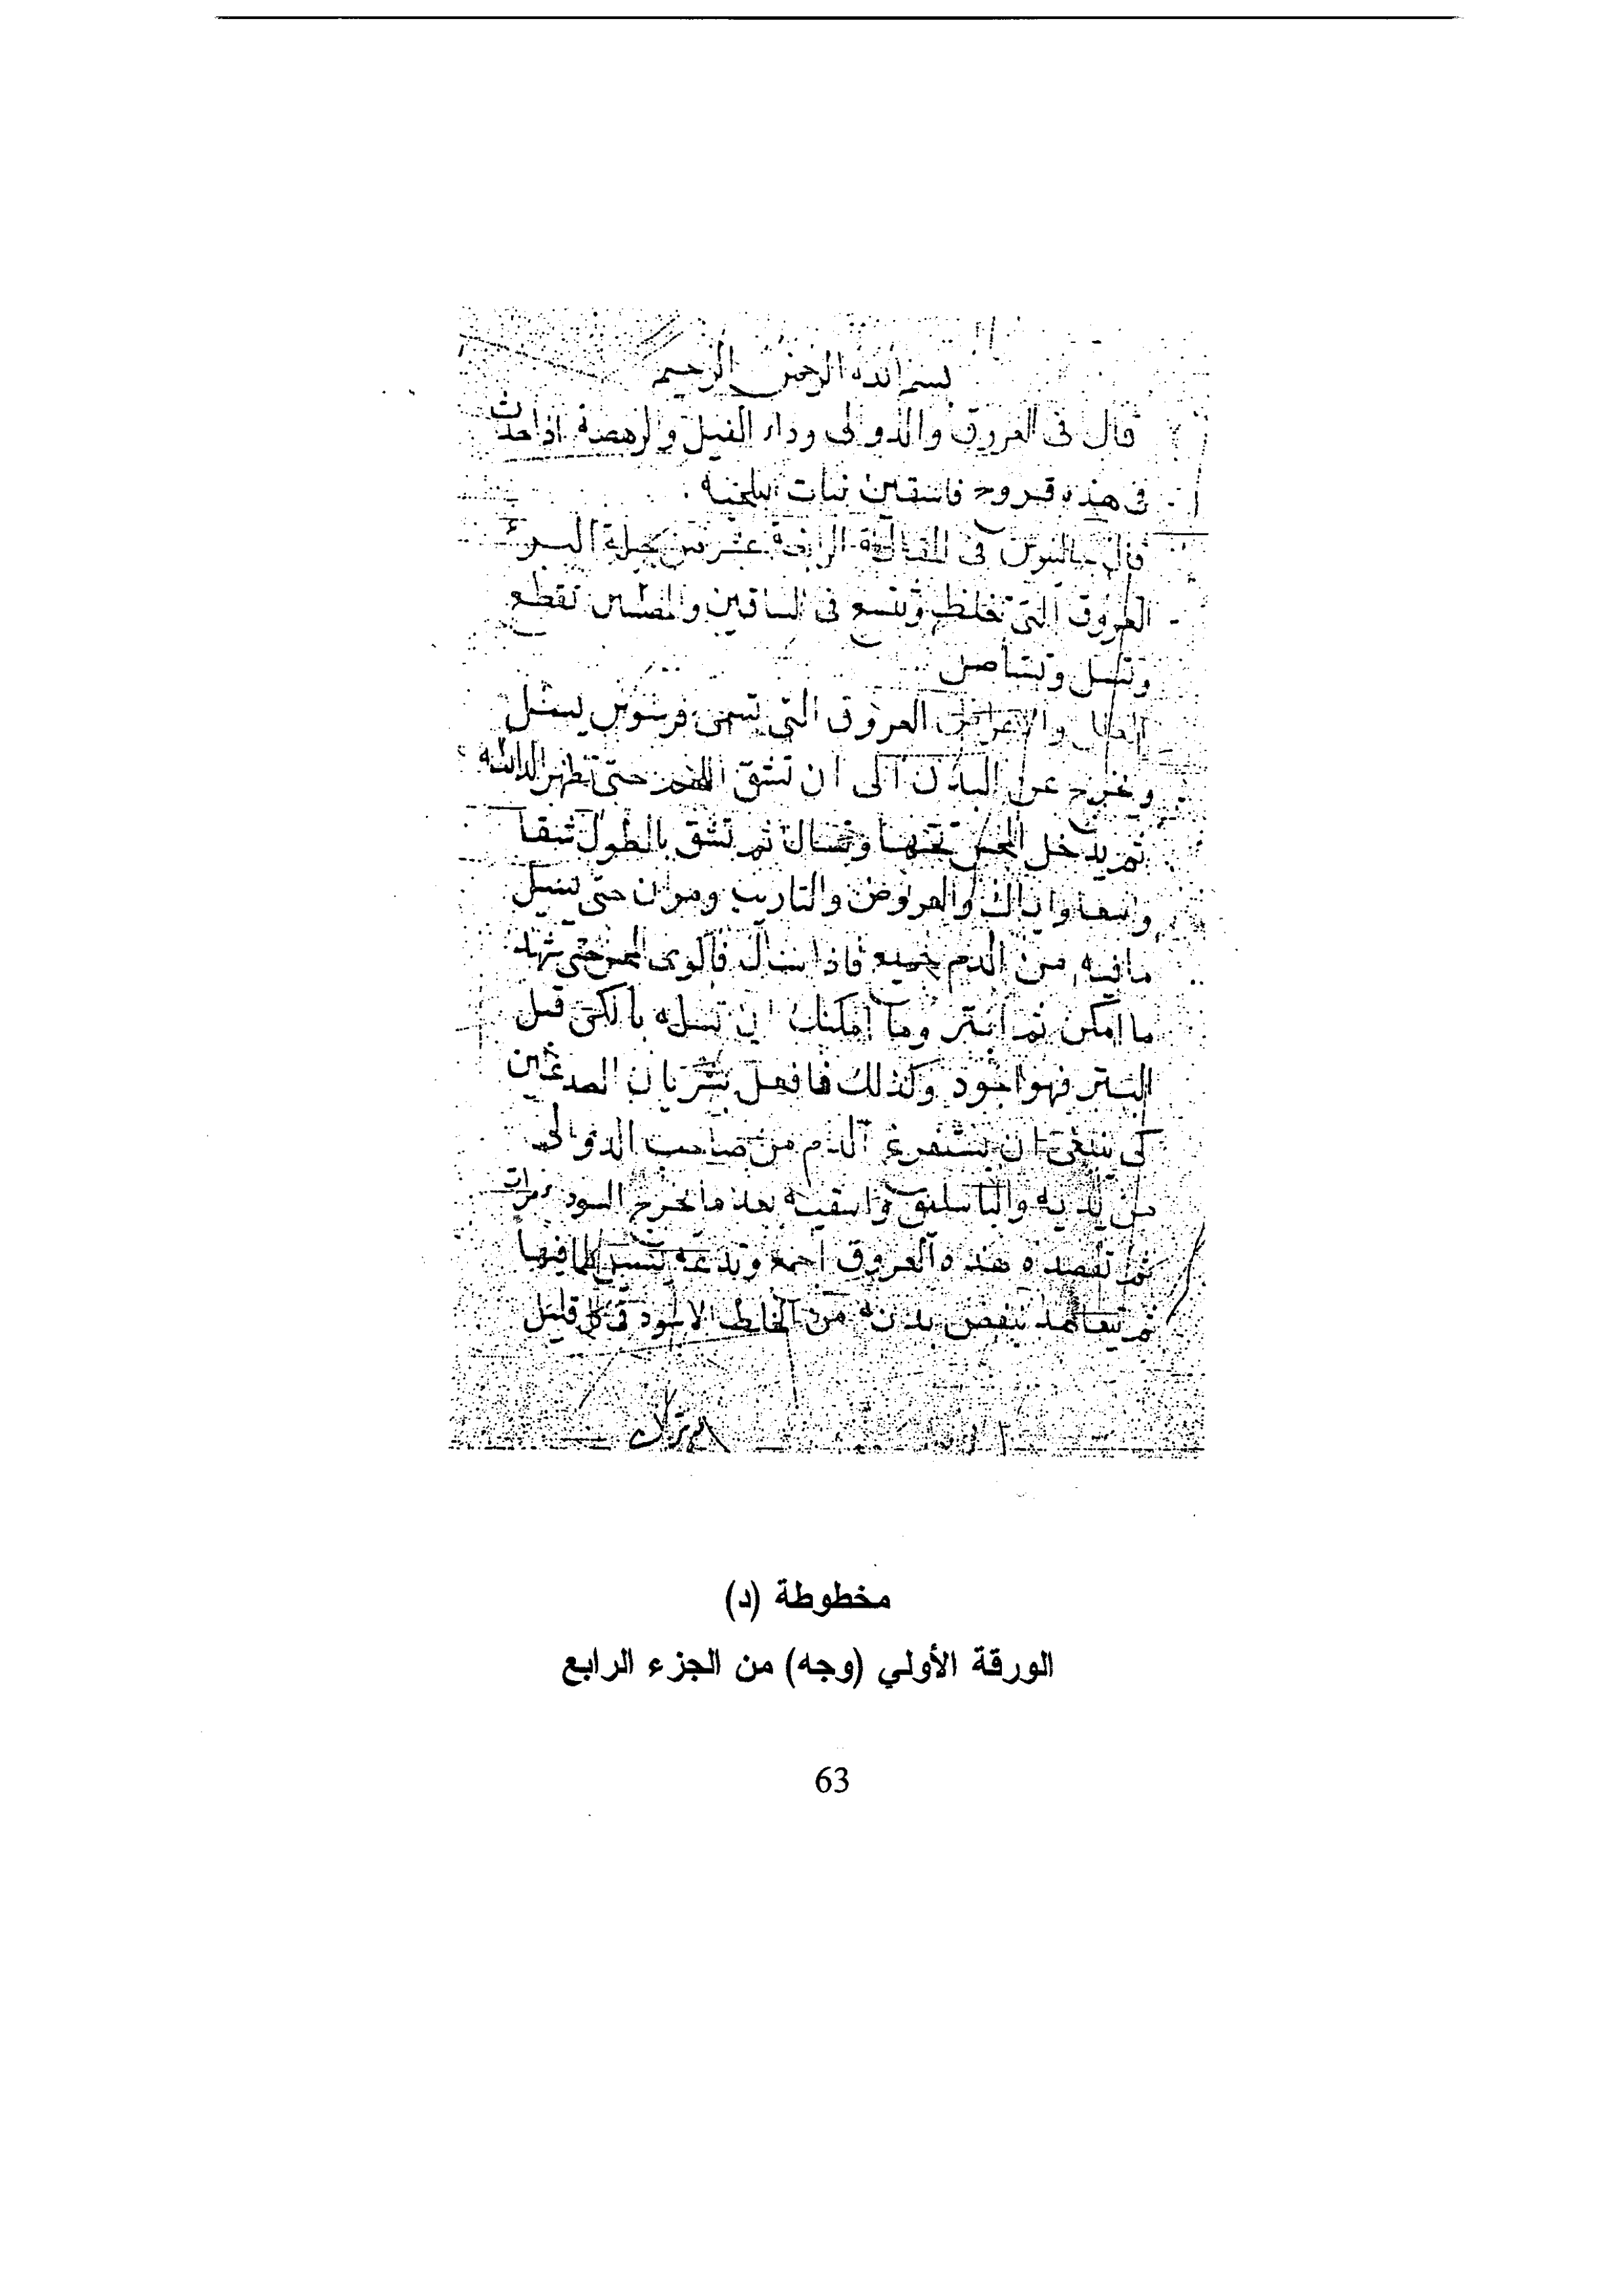 بسم الله الرحمن الرحيم
قال فى العروق والدوالى وداء الفيل والرهصة اذا حدث
فى هذه قروح فاسقين نبات
قال جالينوس فى المقالة الرابعة عشر من حيلة البرء
العروق التى تغلظ وتتسع فى الساقين تقطع
وتسل وتستاصل
العروق التى تسمى يسل
ويخرج عن البدن الى ان تشق حتى تظهر
ثم يدخل المجس تحتها وتشال ثم تشق بالطول شقا
واسعا واياك والعروض والتاريب حتى يسيل
ما فيه من الدم جميع فاذا فالوى المجس حتى
ما امكن ثم ابتر وما امكنك ان تسله بالكى قبل
البتر فهو اجود وكذلك فافعل بشريان الصدغين
ينبغى ان يستفرغ الدم من صاحب الدوالى
من يديه والباسليق واسقيه بعد ما يخرج السوداء مرات
ثم تفصده هذه العروق اجمع وتدعه ما فيها
ثم تتعاهد بنفض بدنه من الخلط الاسود فى كل قليل
مخطوطة (د)
الورقة الأولي (وجه) من الجزء الرابع
63